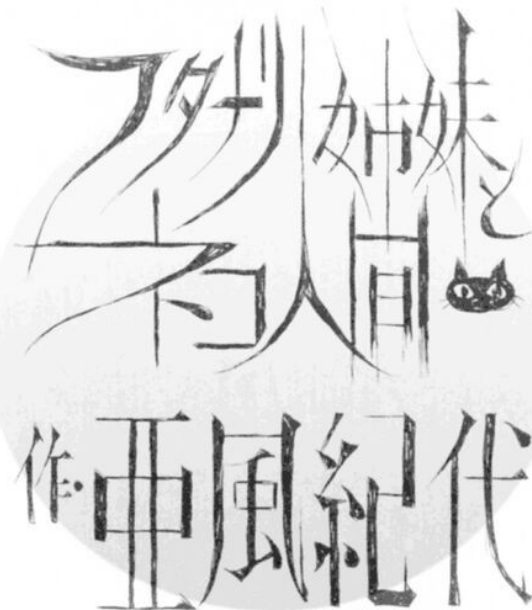 フタナリ姉妹と
ネコ人間
作・亜風紀代